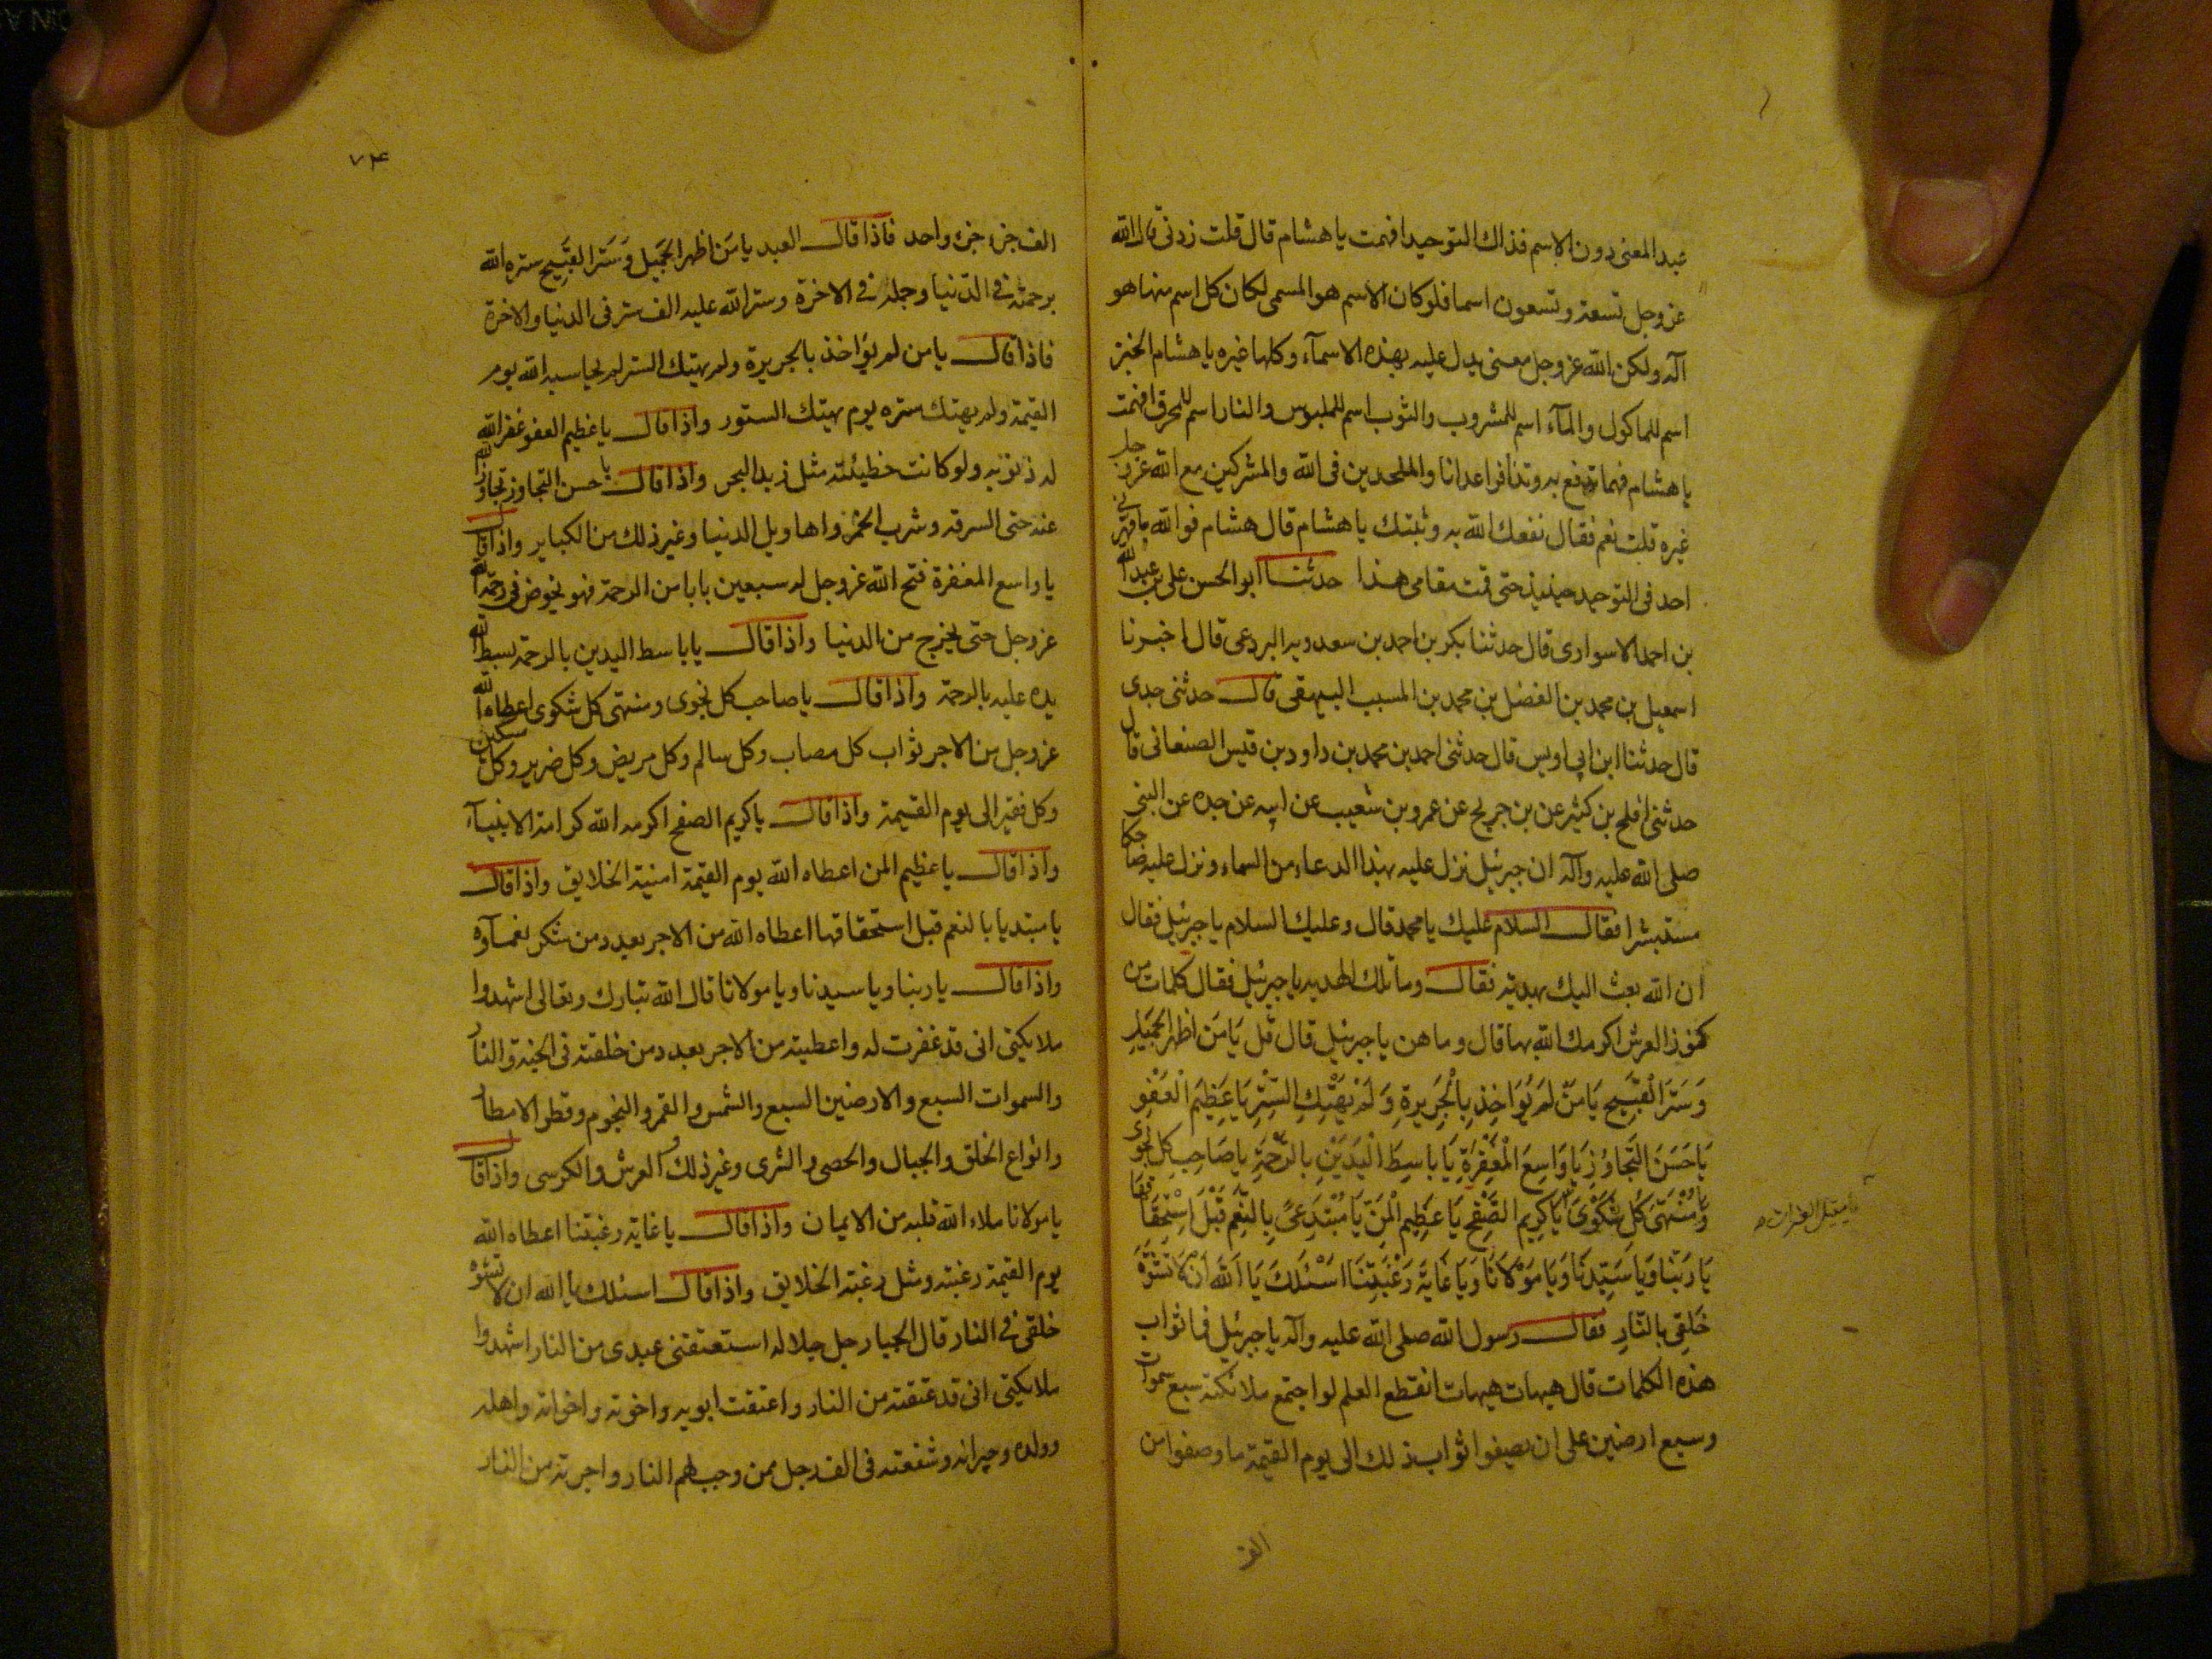 عبد المعنى دون الاسم فذاك التوحيد افهمت يا هشام قال قلت زدني قال الله
عز وجل تسعة وتسعون اسما فلو كان الاسم هو المسمى لكان كل اسم منها هو
اله ولكن الله عز وجل معنى يدل عليه بهذه الاسمآء وكلها غيره يا هشام الخبز
اسم للماكول والمآء اسم للمشروب والثوب اسم للملبوس والنار اسم للمحرق افهمت
يا هشام فهما تدفع به وتنافر اعدانا والملحدين فى الله والمشركين مع الله عز وجل
غيره قلت نعم فقال نفعك الله به وثبتك يا هشام قال هشام فوالله ما قهرني
احد فى التوحيد حينئذ حتى قمت مقامى هذا حدثنا ابو الحسن على بن عبد الله
بن احمد الاسوارى قال حدثنا مكى بن احمد بن سعدويه البردعى قال اخبرنا
اسمعيل بن محمد بن الفضل بن محمد بن المسيب البيهقى قال حدثنى جدى
قال حدثنا ابن ابى اويس قال حدثنى احمد بن محمد بن داود بن قيس الصنعانى قال
حدثنى افلح بن كثير عن بن جريح عن عمرو بن شعيب عن ابيه عن جده عن النبى
صلى الله عليه وآله ان جبرئيل نزل عليه بهذا الدعاء من السماء ونزل عليه ضاحكا
مستبشرا فقال السلام عليك يا محمد قال وعليك السلام يا جبرئيل فقال
ان الله بعث اليك بهدية فقال وما تلك الهديه يا جبرئيل فقال كلمات من
كنوز العرش اكرمك الله بها قال وما هن يا جبرئيل قال قل يَا مَن اظهر الجَمِيلِ
وَسَتَرَ الْقَبِيحِ يَا مَنْ لَمْ يُوَاخِذ بِالْجَرِيرَةِ وَلَمْ يَهْتِكِ السِّتْرِ يَا عَظِيمَ الْعَفْوِ
يَا حَسَنَ التَّجَاوُزِ يَا وَاسِعَ الْمَغْفِرَةِ يَا بَاسِطَ الْيَدَيْنِ بِالرَّحْمَةِ يا صَاحِبَ كل نجوى
وَ يَا مُنْتَهَى كُلِ شَكْوَى يَا كَرِيم الصَّفْحِ يَا عَظِيم الْمَنِّ يَا مُبْتَدِئً بِالنِّعَمِ قَبْلَ اسْتِحْقَاقها
يا مقيل العثرات
يَا رَبَّنا وَيا سَيِّدنَا وَيَا مَوْلَانَا وَيَا غَايَة رَغْبَتِنَا اسْئَلكَ يَا اللّهُ انْ لاَ تُشَوِّهَ
خَلقِى بِالنّارِ فقال رسول الله صلى الله عليه وآله يا جبرئيل فما ثواب
هذه الكلمات قال هيهات هيهات انقطع العلم لو اجتمع ملائكة سبع سموات
وسبع ارضين على ان يصفوا ثواب ذلك الى يوم القيمة ما وصفوا من
الف
٧٤
الف جزء جزء واحد فاذا قال العبد يا مَن اظهر الجَميل وَسَتَر القَبِيح ستره الله
برحمته فى الدّنيا وجمله فى الاخرة وستر الله عليه الف ستر فى الدنيا والاخرة
فاذا قال يا من لم يؤاخذ بالجريرة ولم يهتك الستر لم يحاسبه الله يوم
القيمة ولم يهتك ستره يوم يهتك الستور واذا قال يا عظيم العفو غفر الله
له ذنوبه ولو كانت خطيئته مثل زبد البحر واذا قال يا حسن التجاوز تجاوز الله
عنه حتى السرقه وشرب الخمر واهاويل الدنيا وغير ذلك من الكباير واذا قال
يا واسع المغفرة فتح الله عز وجل له سبعين بابا من الرحمة فهو يخوض فى رحمة الله
عز وجل حتى يخرج من الدنيا واذا قال يا باسط اليدين بالرحمة بسط الله
يده عليه بالرحمة واذا قال يا صاحب كل نجوى ومنتهى كل شكوى اعطاه الله
عز وجل من الاجر ثواب كل مصاب وكل سالم وكل مريض وكل ضرير وكل مسكين
وكل فقير الى يوم القيمة واذا قال يا كريم الصفح اكرمه الله كرامة الانبيآء
واذا قال يا عظيم المن اعطاه الله يوم القيمة امنية الخلايق واذا قال
يا مبتديا بالنعم قبل استحقاقها اعطاه الله من الاجر بعدد من شكر نعمآوه
واذا قال يا ربنا ويا سيدنا ويا مولانا قال الله تبارك وتعالى اشهدوا
ملايكتى انى قد غفرت له واعطيته من الاجر بعدد من خلقته فى الجنة والنار
والسموات السبع والارضين السبع والشمس والقمر والنجوم وقطر الامطار
وانواع الخلق والجبال والحصى والثرى وغير ذلك والعرش والكرسى واذا قال
يا مولانا ملاء الله قلبه من الايمان واذا قال يا غاية رغبتنا اعطاه الله
يوم القيمة رغبته ومثل رغبة الخلايق واذا قال اسئلك يا الله ان لا تشوه
خلقى فى النار قال الجبار جل جلاله استعتقنى عبدى من النار اشهدوا
ملايكتى انى قد عتقته من النار واعتقت ابويه واخوته واخواته واهله
وولده وجيرانه وشفعته فى الف رجل ممن وجب لهم النار واجرته من النار